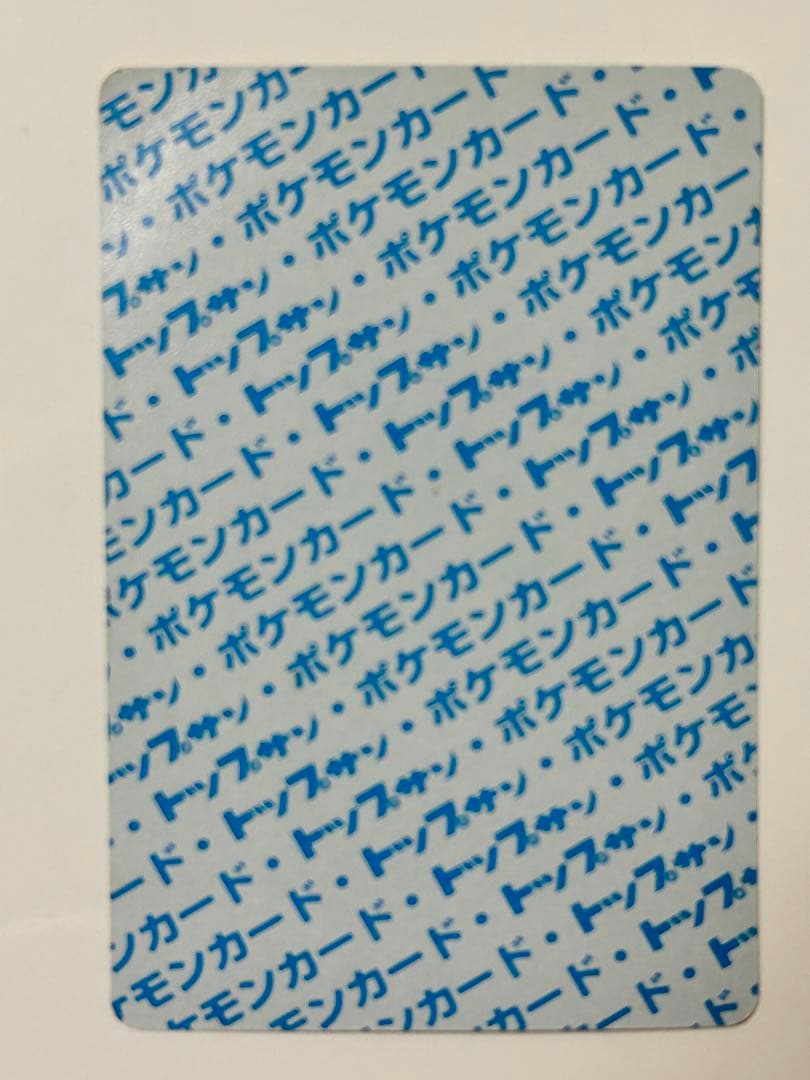 モンカ
ポケモンカー
ン・ポケモンカー
プサン・ポケモンカード
トップサン・ポケモンカード・
ド・トップサン・ポケモンカード・ト
カード・トップサン・ポケモンカード・
モンカード・トップサン・ポケモンカー
ケモンカード・トップサン・ポケモン
・ポケモンカード・トップサン・ポケモ
サン・ポケモンカード・トップサン・ポ
ップサン・ポケモンカード・トップサン
・トップサン・ポケモンカード・トップ
ード・トップサン・ポケモンカード・ト
ンカード・トップサン・ポケモンカード
ケモンカード・トップサン・ポケモンカ
ケモンカード・トップサン・ポケモ
モンカード・トップサン・ポケ
ンカード・トップサン・
カード・トップサ
ード・ト
ド・